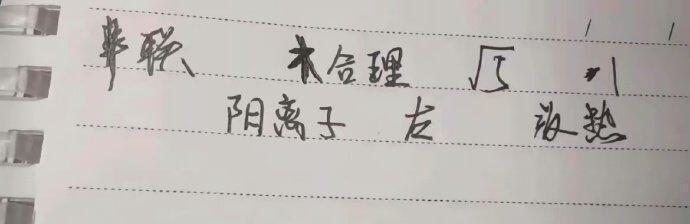 串联 不合理 √5 -1
阳离子 左 放热